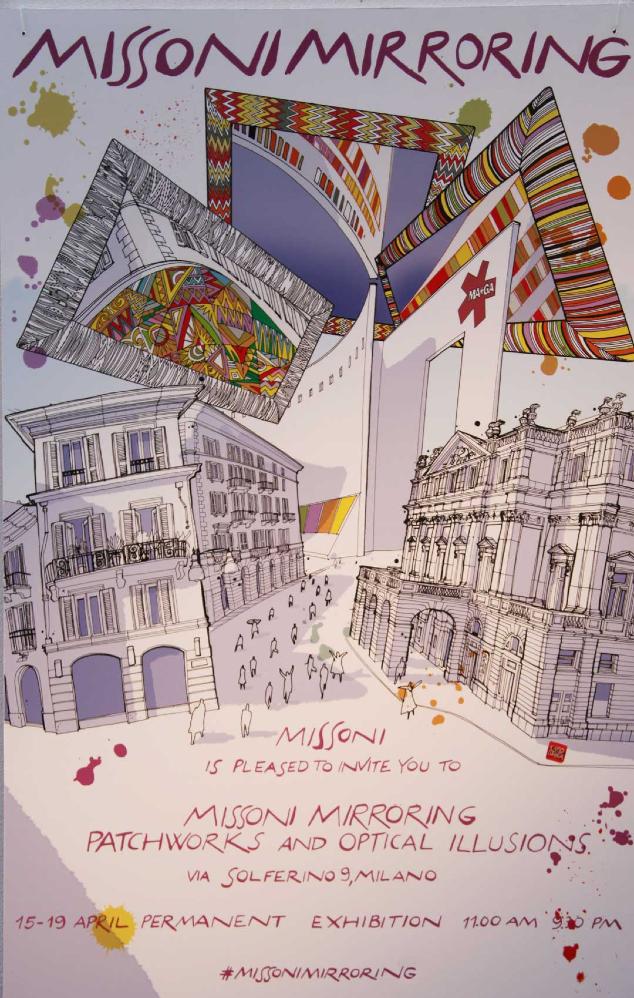 MISSONI MIRRORING
MA*GA
MISSONI
IS PLEASED TO INVITE YOU TO
MISSONI MIRRORING
PATCHWORKS AND OPTICAL ILLUSIONS
VIA SOLFERINO 9, MILANO
15-19 APRIL PERMANENT EXHIBITION 11.00 AM PM
#MISSONIMIRRORING